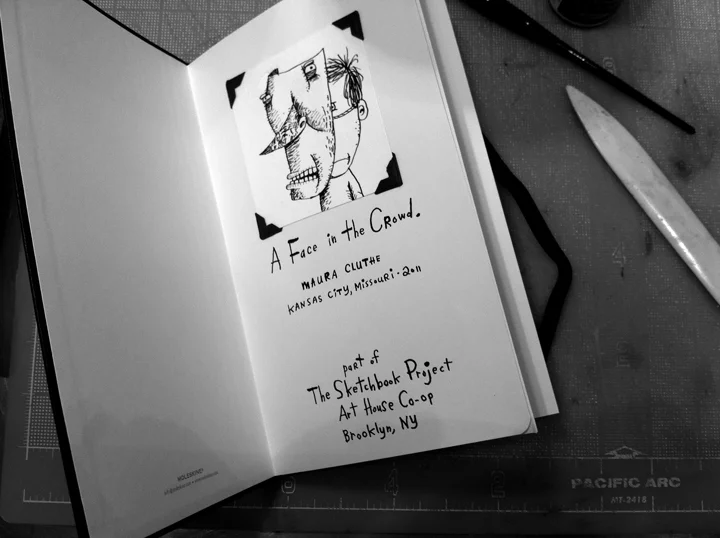 A Face in the Crowd.
MAURA CLUTHE
KANSAS CITY, MISSOURI - 2011
part of
The Sketchbook Project
Art House Co-op
Brooklyn, NY
MOLESKINE®
PACIFIC ARC
MT-2418